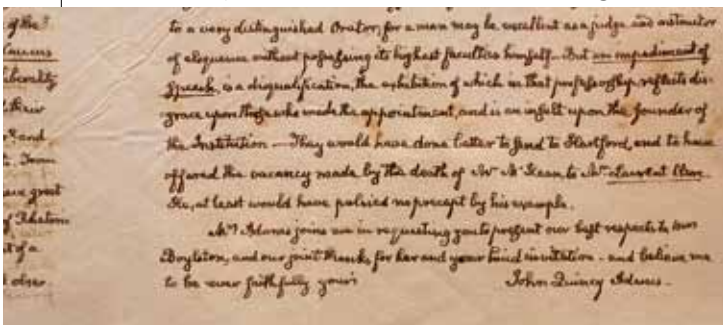 of the
Caucus
liberality
and
great
of Rhetoric
of a
to a very distinguished Orator, for a man may be excellent as a judge and instructor
of eloquence without possessing its highest faculties himself — But an impediment of
Speech, is a disqualification, the exhibition of which in that professorship, reflects dis-
grace upon those who made the appointment, and is an insult upon the founder of
the Institution — They would have done better to send to Hartford, and to have
offered the vacancy made by the death of Mr McKean, to Mr Laurent Clerc
He, at least would have palsied no precept by his example.
Mrs Adams joins me in requesting you to present our best respects to Mrs
Boylston, and our joint thanks, for her and your kind invitation - and believe me
to be ever faithfully yours John Quincy Adams.